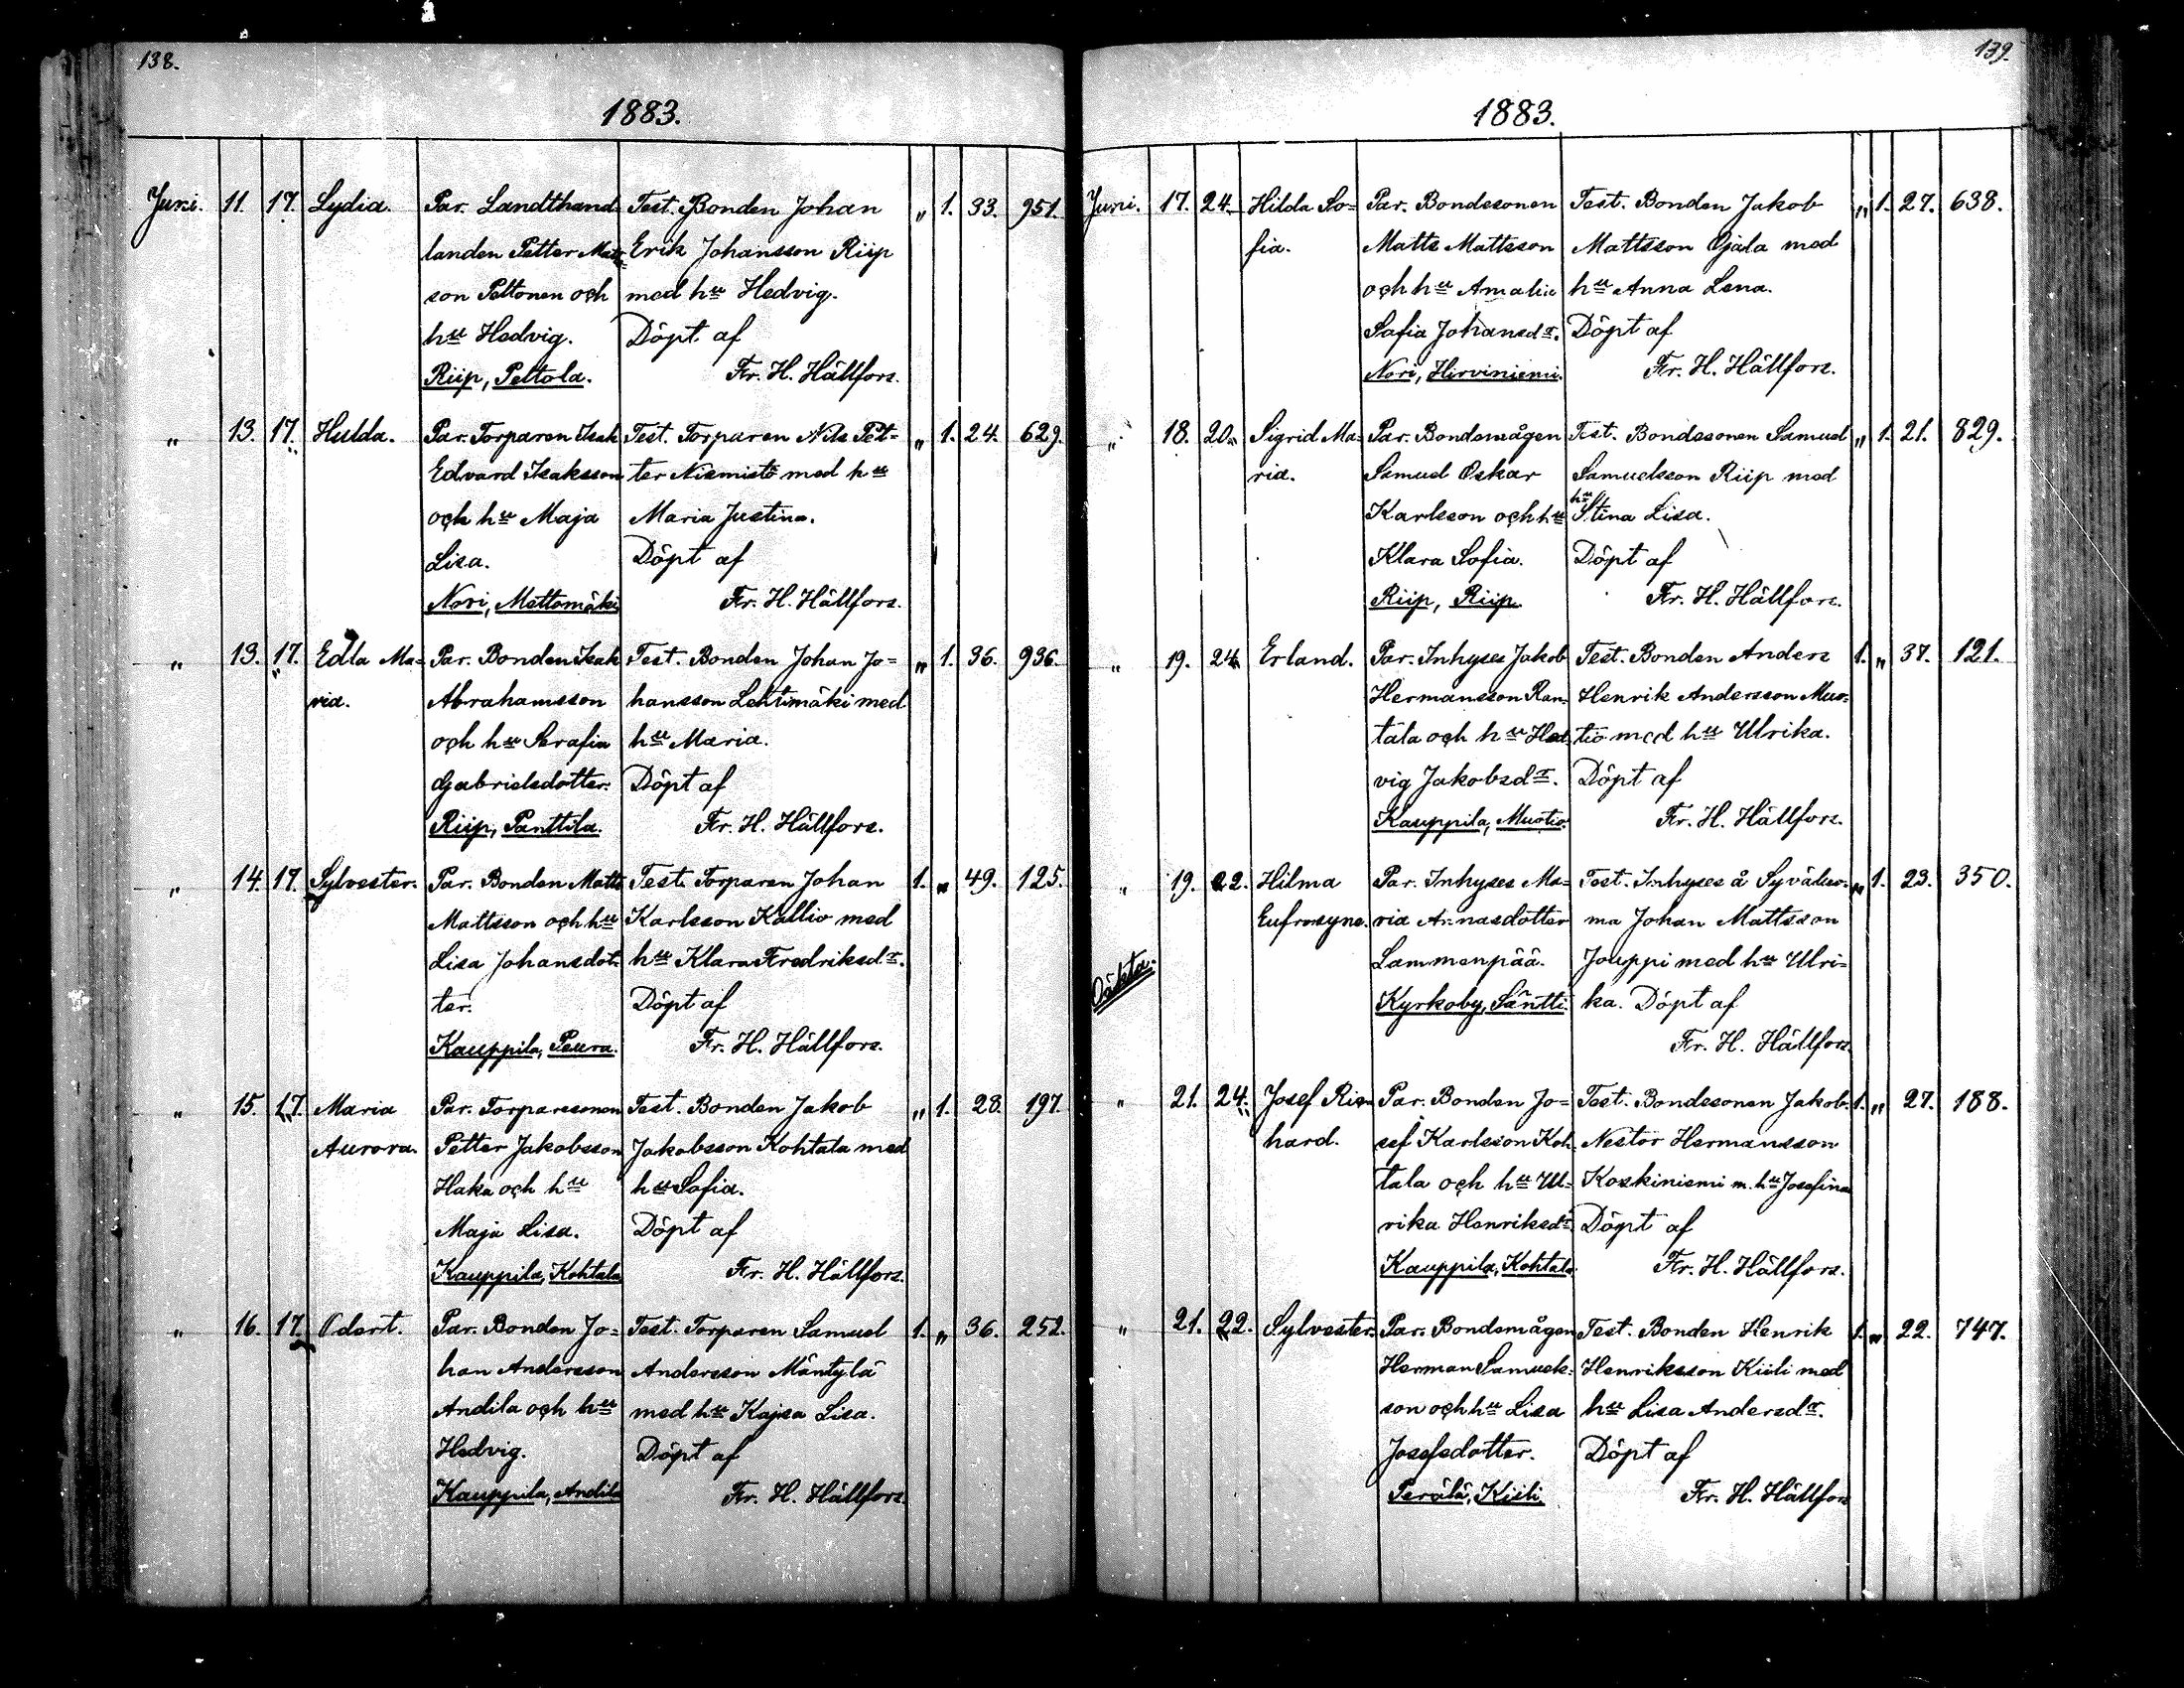 138.
1883.
Juni. 11. 17. Lydia. Par. Landthand Test. Bonden Johan „ 1. 33. 951.
landen Petter Mats= Erik Johansson Riip
son Peltonen och med hu Hedvig.
hu Hedvig. Döpt af
Riip, Peltola. Fr. H. Hällfors.
„ 13. 17. Hulda. Par. Torparen Isak Test. Torparen Nils Pet= „ 1. 24. 629.
Edvard Isaksson ter Niemistö med hu
och hu Maja Maria Justina.
Lisa. Döpt af
Nori, Mettomäki Fr. H. Hällfors.
„ 13. 17. Edla Ma= Par. Bonden Isak Test. Bonden Johan Jo= „ 1. 36. 936.
ria. Abrahamsson hansson Lehtimäki med
och hu Serafia hu Maria.
Gabrielsdotter. Döpt af
Riip, Panttila. Fr. H. Hällfors.
„ 14. 17. Sylvester. Par. Bonden Matts Test. Torparen Johan 1. „ 49. 125.
Mattsson och hu Karlsson Kallio med
Lisa Johansdot= hu Klara Fredriksdr.
ter. Döpt af
Kauppila, Peura. Fr. H. Hällfors.
„ 15. 17. Maria Par. Torparesonen Test. Bonden Jakob „ 1. 28. 197.
Aurora. Petter Jakobsson Jakobsson Kohtala med
Haka och hu hu Sofia.
Maja Lisa. Döpt af
Kauppila, Kohtala Fr. H. Hällfors.
„ 16. 17. Odert. Par. Bonden Jo= Test. Torparen Samuel 1. „ 36. 252.
han Andersson Andersson Mäntylä
Andila och hu med hu Kajsa Lisa.
Hedvig. Döpt af
Kauppila, Andila Fr. H. Hällfors.
139.
1883.
Juni. 17. 24. Hilda So= Par. Bondesonen Test. Bonden Jakob „ 1. 27. 638.
fia. Matts Mattsson Mattsson Ojala med
och hu Amalia hu Anna Lena.
Sofia Johansdr. Döpt af
Nori, Hirviniemi. Fr. H. Hällfors.
„ 18. 20. Sigrid Ma= Par. Bondemågen Test. Bondesonen Samuel „ 1. 21. 829.
ria. Samuel Oskar Samuelsson Riip med
Karlsson och hu hu Stina Lisa.
Klara Sofia. Döpt af
Riip, Riip. Fr. H. Hällfors.
„ 19. 24. Erland. Par. Inhyses Jakob Test. Bonden Anders 1. „ 37. 121.
Hermansson Ran= Henrik Andersson Muo=
tala och hu Hed= tio med hu Ulrika.
vig Jakobsdr. Döpt af
Kauppila, Muotio. Fr. H. Hällfors.
„ 19. 22. Hilma Par. Inhyses Ma= Test. Inhyses å Syväluo= „ 1. 23. 350.
Eufrosyne. ria Annasdotter ma Johan Mattsson
Oäkta. Lammenpää. Jouppi med hu Ulri=
Kyrkoby, Säntti. ka. Döpt af
Fr. H. Hällfors.
„ 21. 24. Josef Rik= Par. Bonden Jo= Test. Bondesonen Jakob 1. „ 27. 188.
hard. sef Karlsson Koh= Nestor Hermansson
tala och hu Ul= Koskiniemi m. hu Josefina
rika Henriksdr. Döpt af
Kauppila, Kohtala. Fr. H. Hällfors.
„ 21. 22. Sylvester. Par. Bondemågen Test. Bonden Henrik 1. „ 22. 747.
Herman Samuels= Henriksson Kiili med
son och hu Lisa hu Lisa Andersdr.
Josefsdotter. Döpt af
Perälä, Kiili. Fr. H. Hällfors